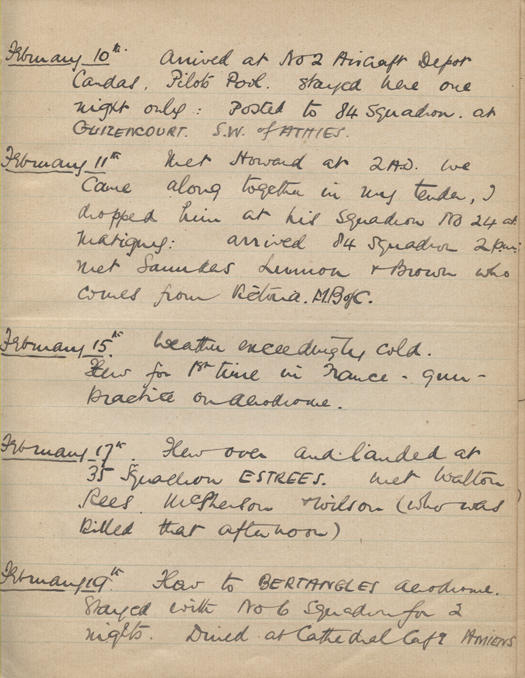 February 10th. Arrived at No 2 Aircraft Depot
Candas. Pilots Pool. Stayed here one
night only: Posted to 84 Squadron. at
GUIZENCOURT. S.W. of ATHIES.
February 11th Met Howard at 2 A.D. we
came along together in my tender, I
dropped him at his Squadron No 24 at
Matigny: arrived 84 Squadron 2 p.m:
met Saunders Lemmon & Brown who
comes from Victoria. B of C.
February 15th. Weather exceedingly cold.
Flew for 1st time in France - gun-
practice on aerodrome.
February 17th. Flew over and landed at
35 Squadron ESTREES. met Walton
Rees McPherson & Wilson (who was
killed that afternoon)
February 19th. Flew to BERTANGLES aerodrome.
Stayed with No 6 Squadron for 2
nights. Dined at Cathedral Café AMIENS